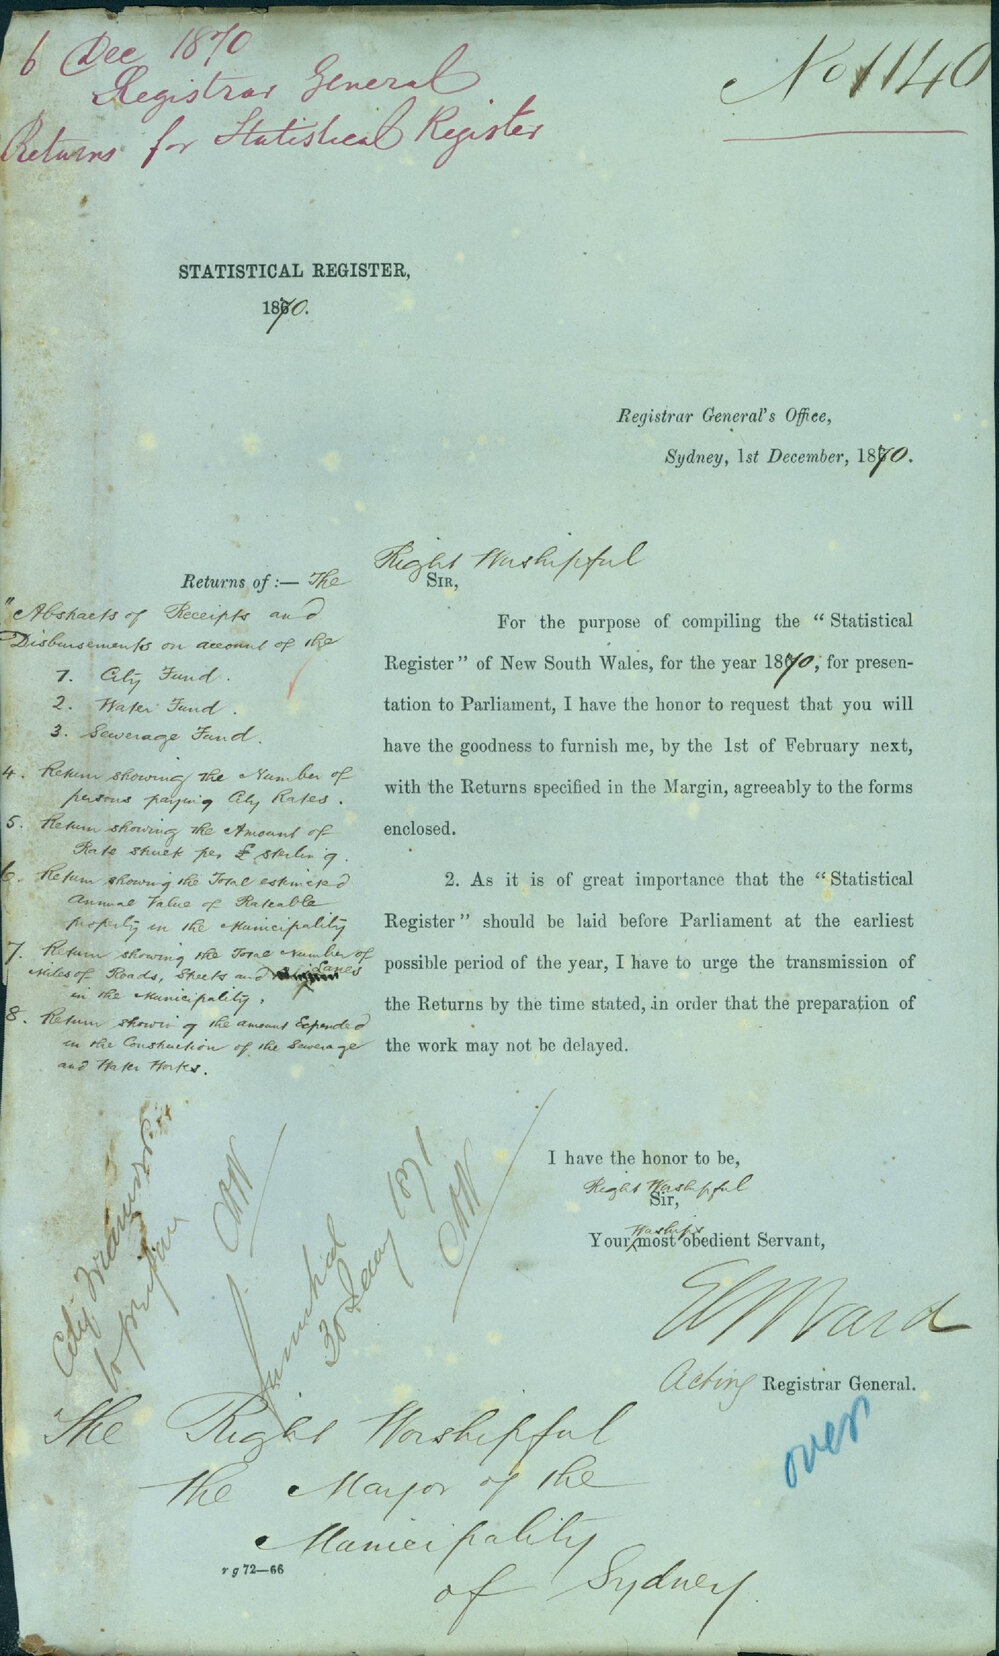 6 Dec 1870
Registrar General
Returns for Statistical Register
No 1140
STATISTICAL REGISTER,
1870.
Registrar General's Office,
Sydney, 1st December, 1870.
Right Worshipful
SIR,
Returns of :— The
"Abstracts of Receipts and
Disbursements on account of the
1. City Fund.
2. Water Fund.
3. Sewerage Fund.
4. Return showing the Number of
persons paying City Rates.
5. Return showing the Amount of
Rate struck per £ sterling.
6. Return showing the Total estimated
annual Value of Rateable
property in the Municipality
7. Return showing the Total Number of
Miles of Roads, Streets and Lanes
in the Municipality.
8. Return showing the amount Expended
in the Construction of the Sewerage
and Water Works.
For the purpose of compiling the "Statistical
Register" of New South Wales, for the year 1870, for presen-
tation to Parliament, I have the honor to request that you will
have the goodness to furnish me, by the 1st of February next,
with the Returns specified in the Margin, agreeably to the forms
enclosed.
2. As it is of great importance that the "Statistical
Register" should be laid before Parliament at the earliest
possible period of the year, I have to urge the transmission of
the Returns by the time stated, in order that the preparation of
the work may not be delayed.
I have the honor to be,
Right Worshipful
Sir,
Your Worship's most obedient Servant,
Ward
Acting Registrar General.
City
to prepare
furnished
30 Jany 1871
over
The Right Worshipful
the Mayor of the
Municipality
of Sydney
r g 72—66